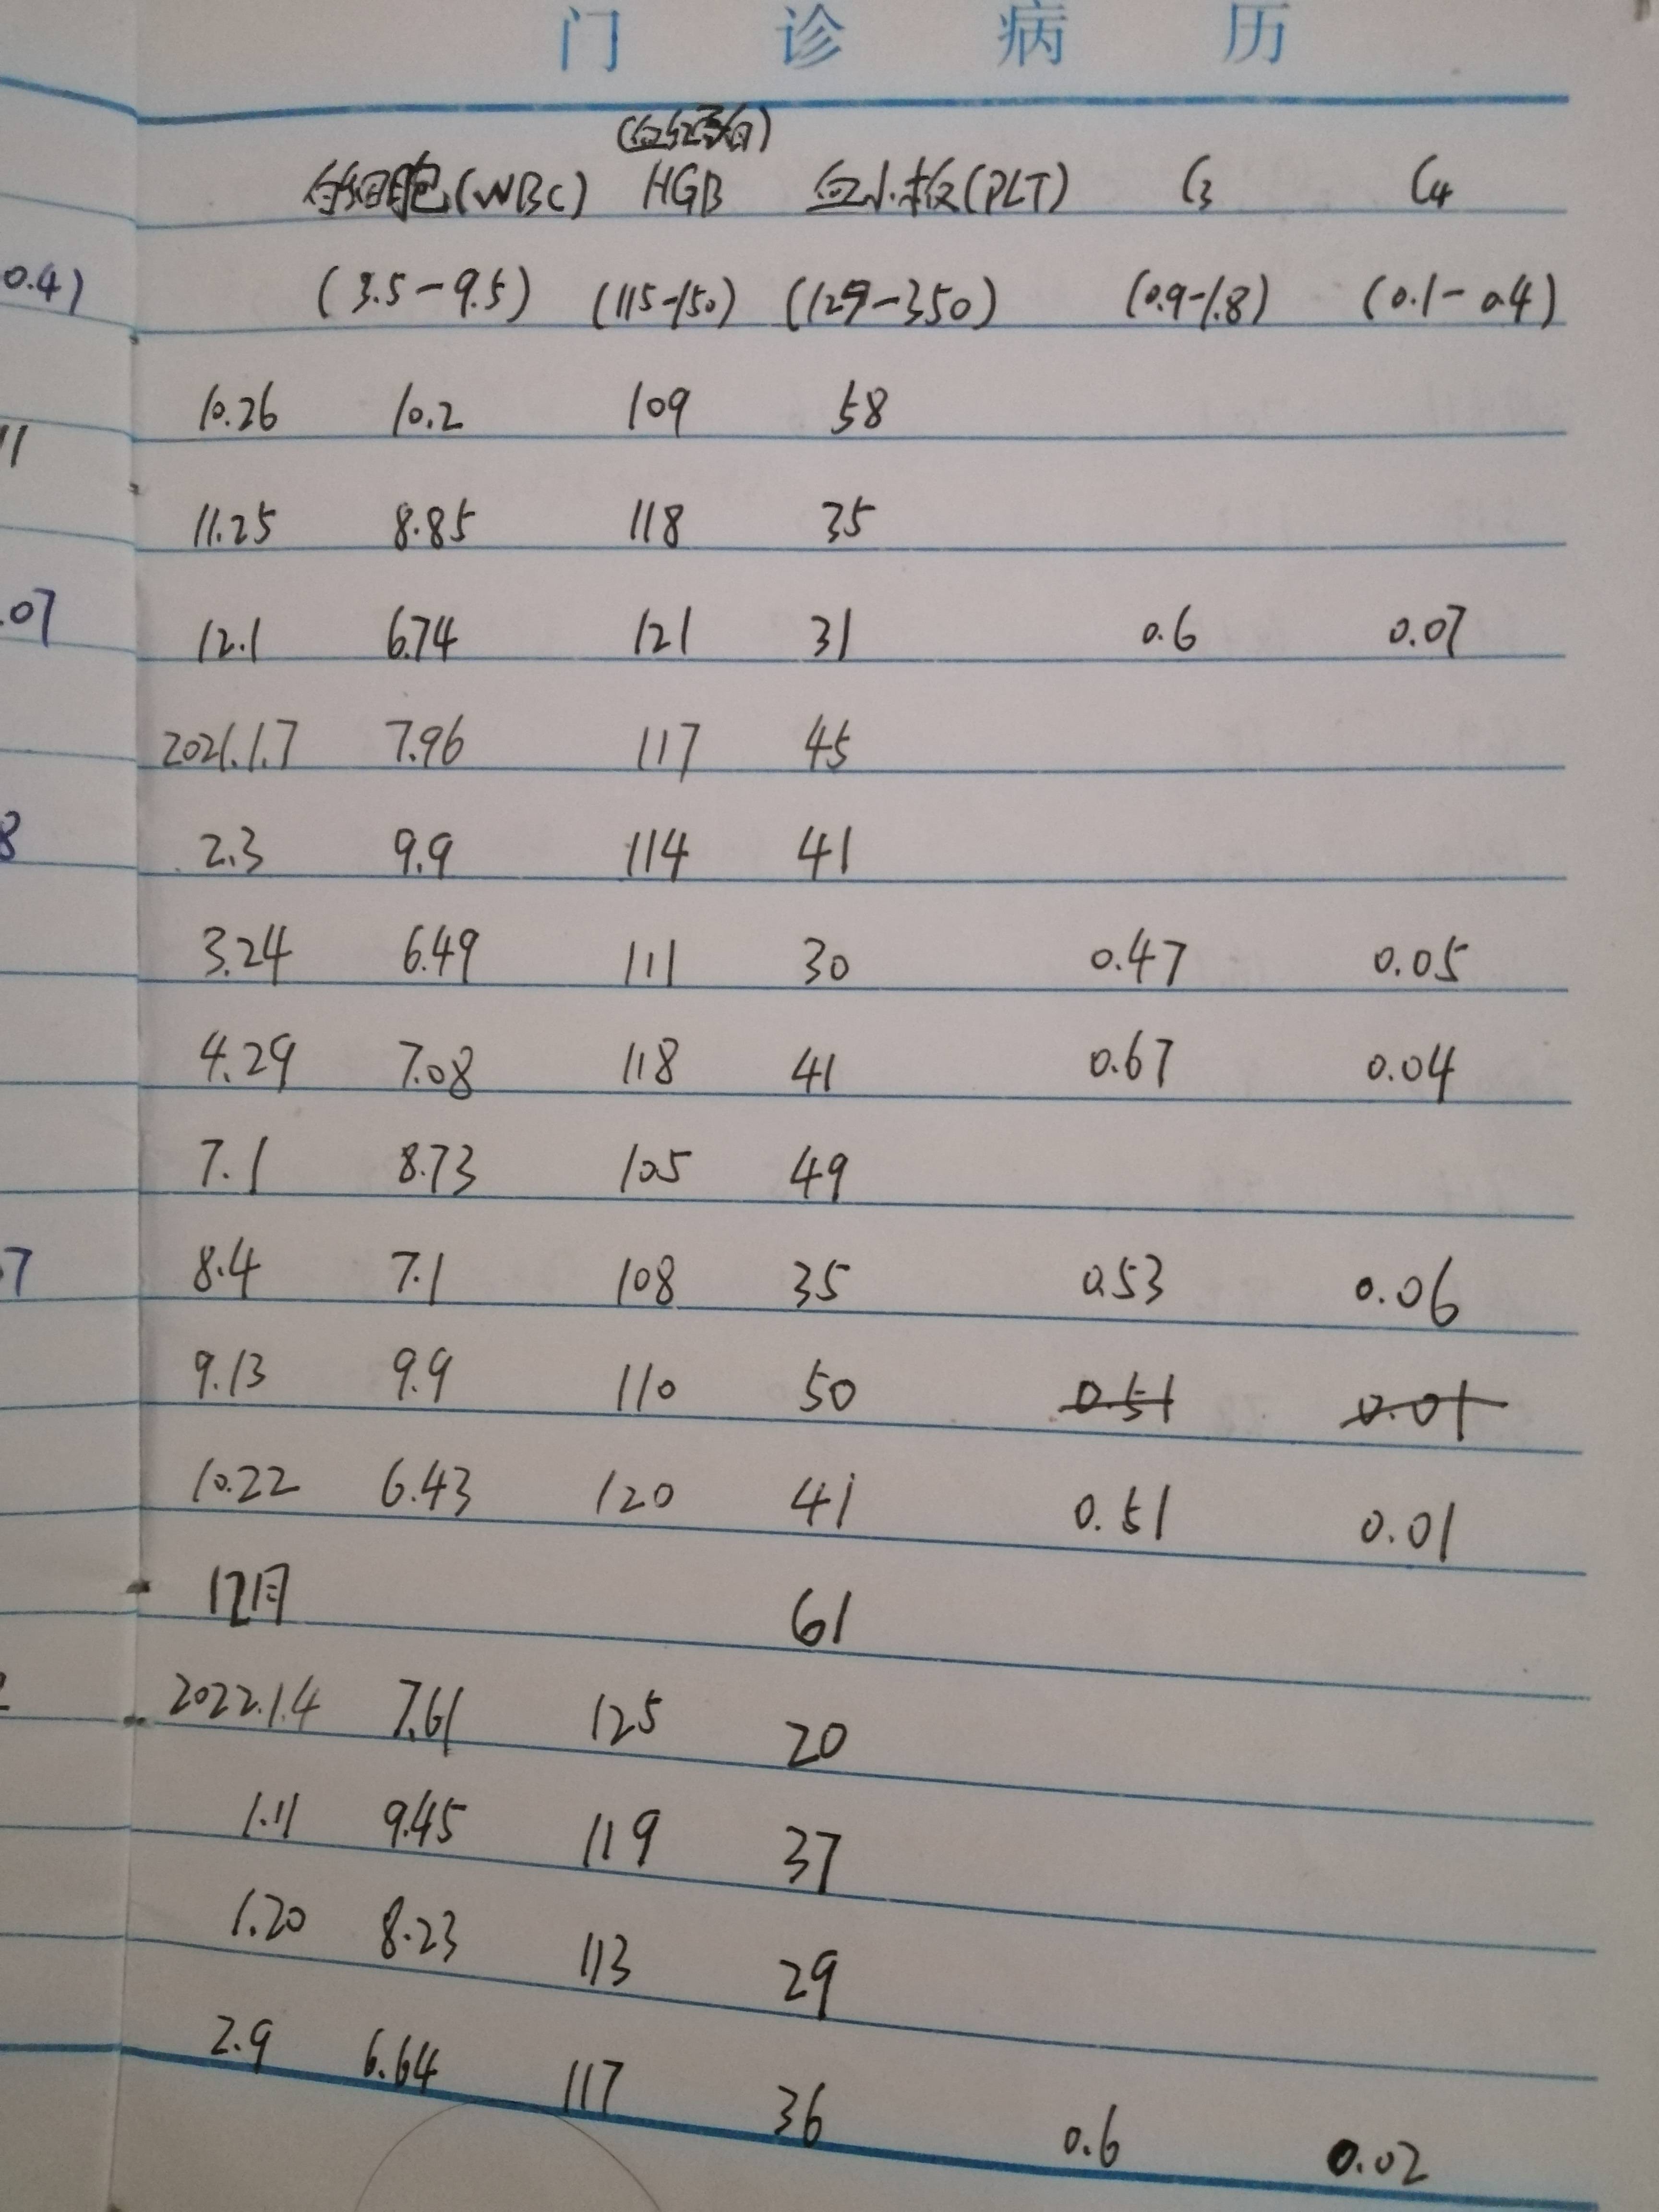 门诊病历
(血红蛋白)
白细胞(WBC) HGB 血小板(PLT) C3 C4
0.4) (3.5-9.5) (115-150) (129-350) (0.9-1.8) (0.1-0.4)
10.26 10.2 109 58
11 11.25 8.85 118 35
.07 12.1 6.74 121 31 0.6 0.07
2021.1.7 7.96 117 45
8 2.3 9.9 114 41
3.24 6.49 111 30 0.47 0.05
4.29 7.08 118 41 0.67 0.04
7.1 8.73 105 49
7 8.4 7.1 108 35 0.53 0.06
9.13 9.9 110 50 0.51 0.01
10.22 6.43 120 41 0.51 0.01
12月 61
2022.1.4 7.61 125 20
1.11 9.45 119 37
1.20 8.23 113 29
2.9 6.64 117 36 0.6 0.02